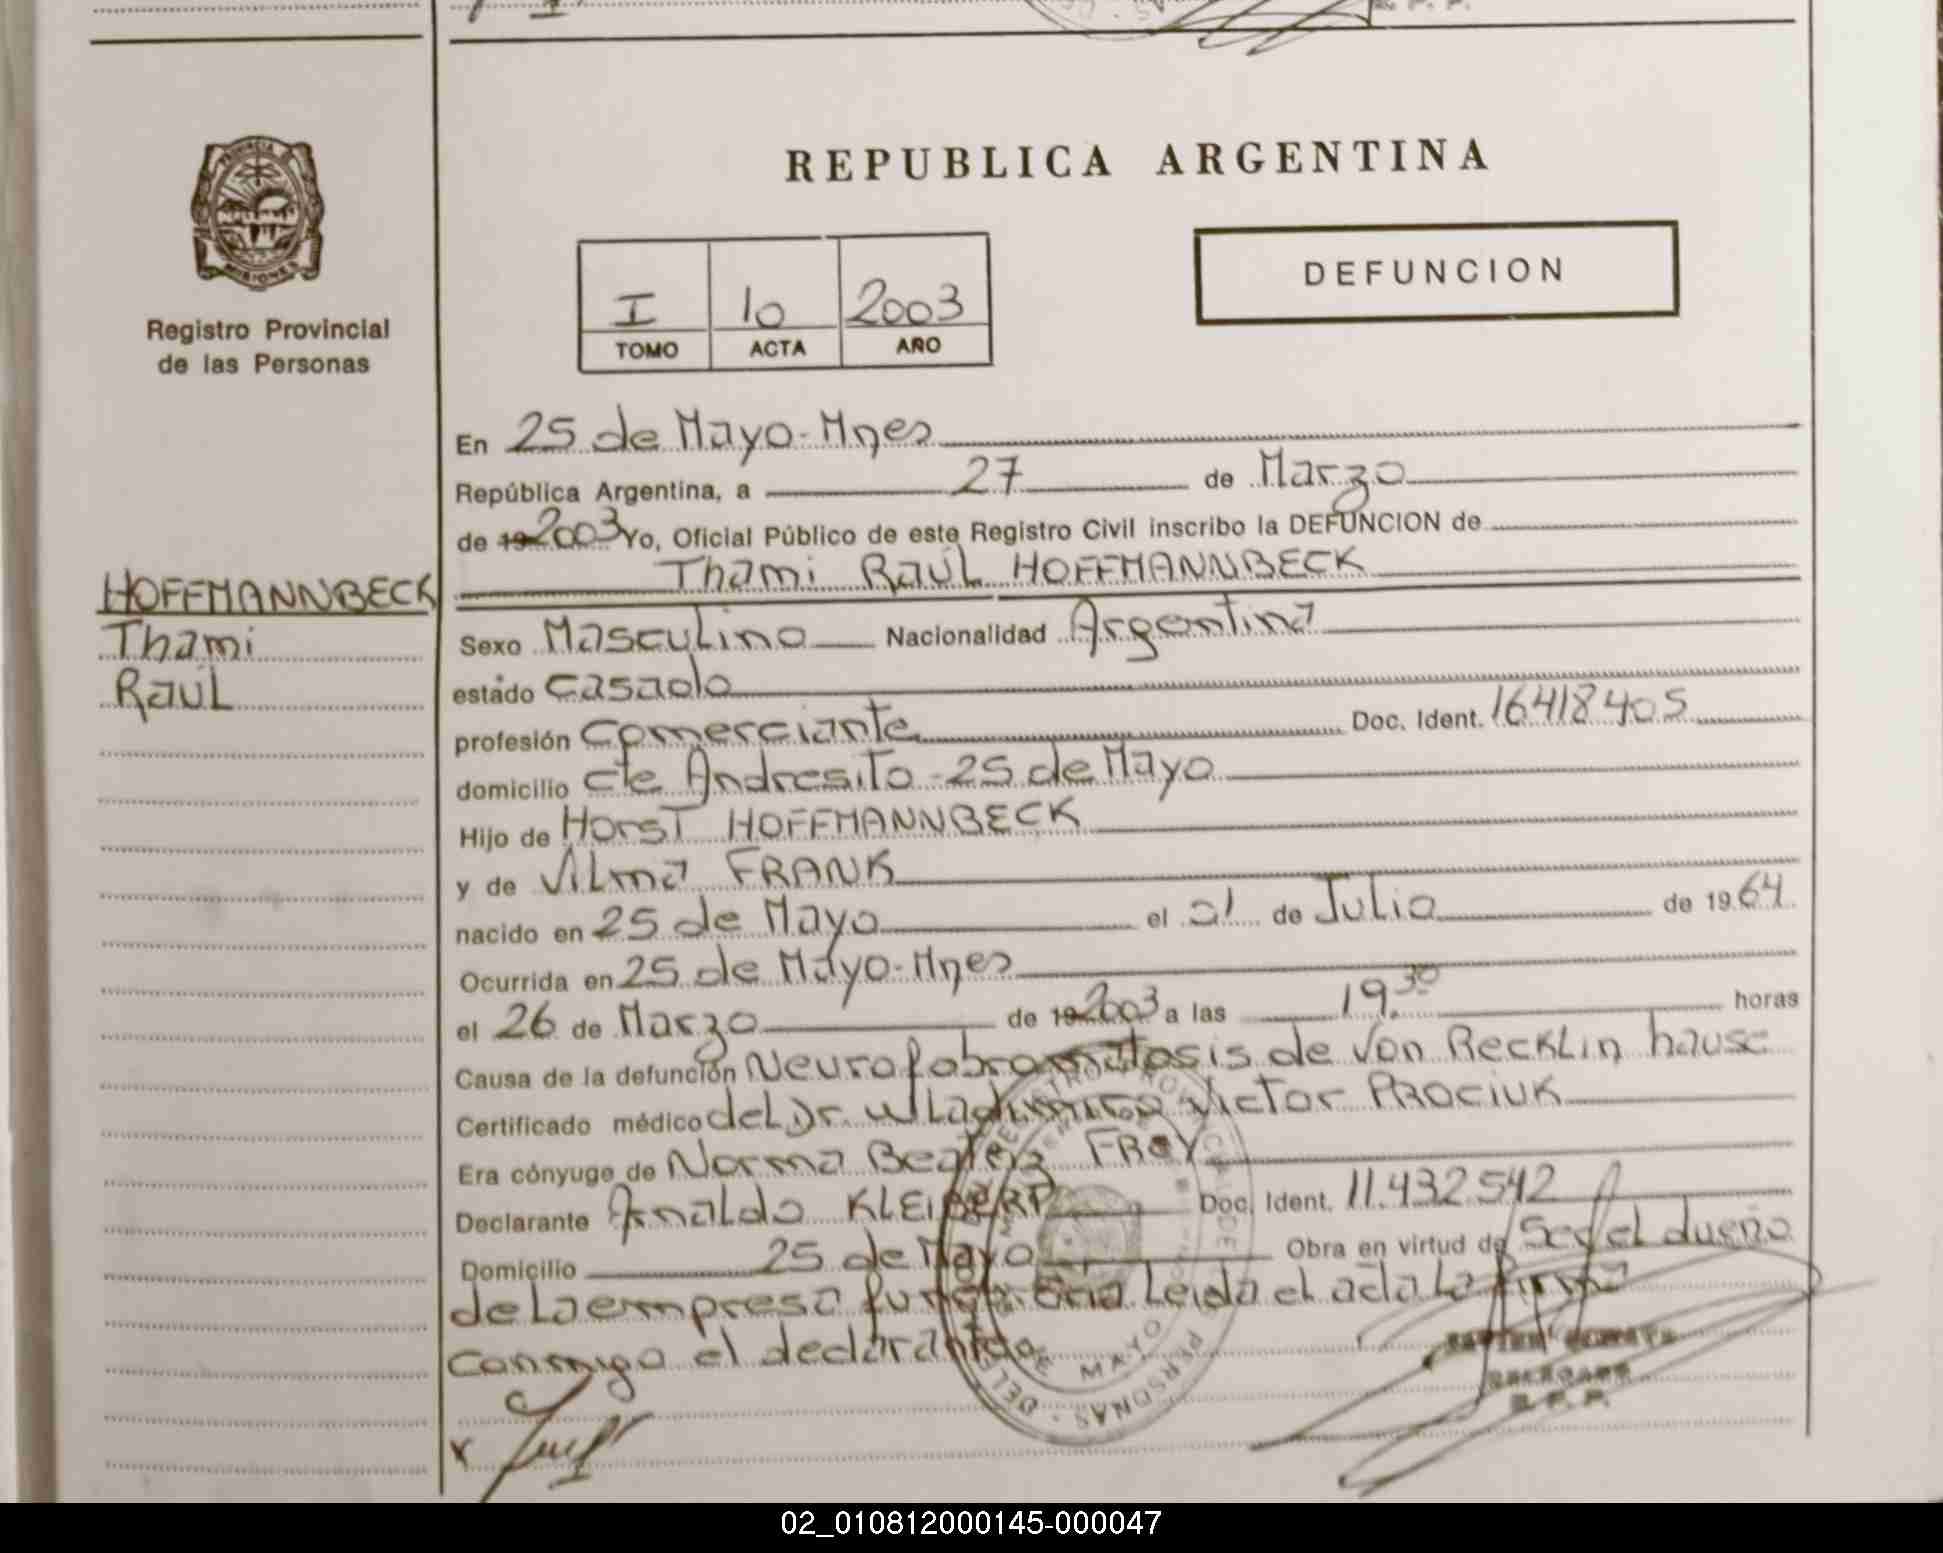 PROVINCIA DE
MISIONES
Registro Provincial
de las Personas
HOFFMANNBECK
Thami
Raúl
REPUBLICA ARGENTINA
I 10 2003
TOMO ACTA AÑO
DEFUNCION
En 25 de Mayo-Mnes
República Argentina, a 27 de Marzo
de 19 2003 Yo, Oficial Público de este Registro Civil inscribo la DEFUNCION de
Thami Raúl HOFFMANNBECK
Sexo Masculino Nacionalidad Argentina
estado casado
profesión comerciante Doc. Ident. 16418405
domicilio cte Andresito-25 de Mayo
Hijo de Horst HOFFMANNBECK
y de Vilma FRANK
nacido en 25 de Mayo el 01 de Julio de 1964
Ocurrida en 25 de Mayo-Mnes
el 26 de Marzo de 19 2003 a las 19.30 horas
Causa de la defunción Neurofabromatosis de Von Recklin hause
Certificado médico del Dr. Wladimiro Victor PROCIUK
Era cónyuge de Norma Beatriz FREY
Declarante Arnaldo KLEIBERT Doc. Ident. 11.432.542
Domicilio 25 de Mayo Obra en virtud de Ser el dueño
de la empresa funeraria Leida el acta la firma
conmigo el declarante
DELEGADO
R. P. P.
02_010812000145-000047